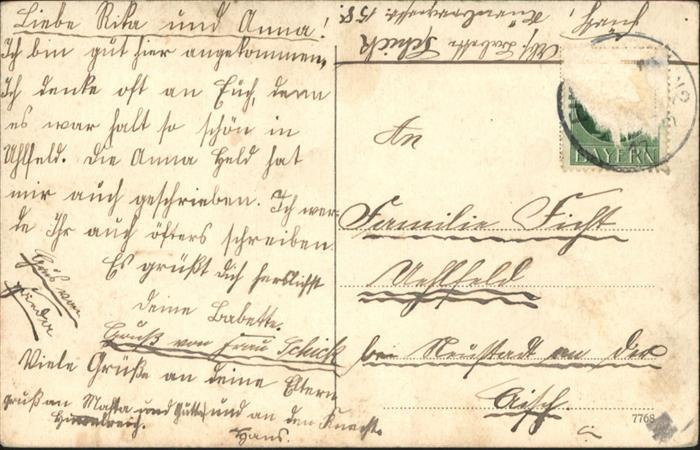 Liebe Rika und Anna!
Ich bin gut hier angekommen,
Ich denke oft an Euch, denn
es war halt so schön in
Uhlfeld. Die Anna Held hat
mir auch geschrieben. Ich wer-
de Ihr auch öfters schreiben.
Es grüßt dich herzlichst
deine Babette.
Gruß von Frau Schick
Viele Grüße an deine Eltern
gruß an und und an den Knecht
Hans.
Gruß von
Schick
BAYERN
An
Familie Ficht
Uehlfeld
bei Neustadt an der
Aisch.
7768